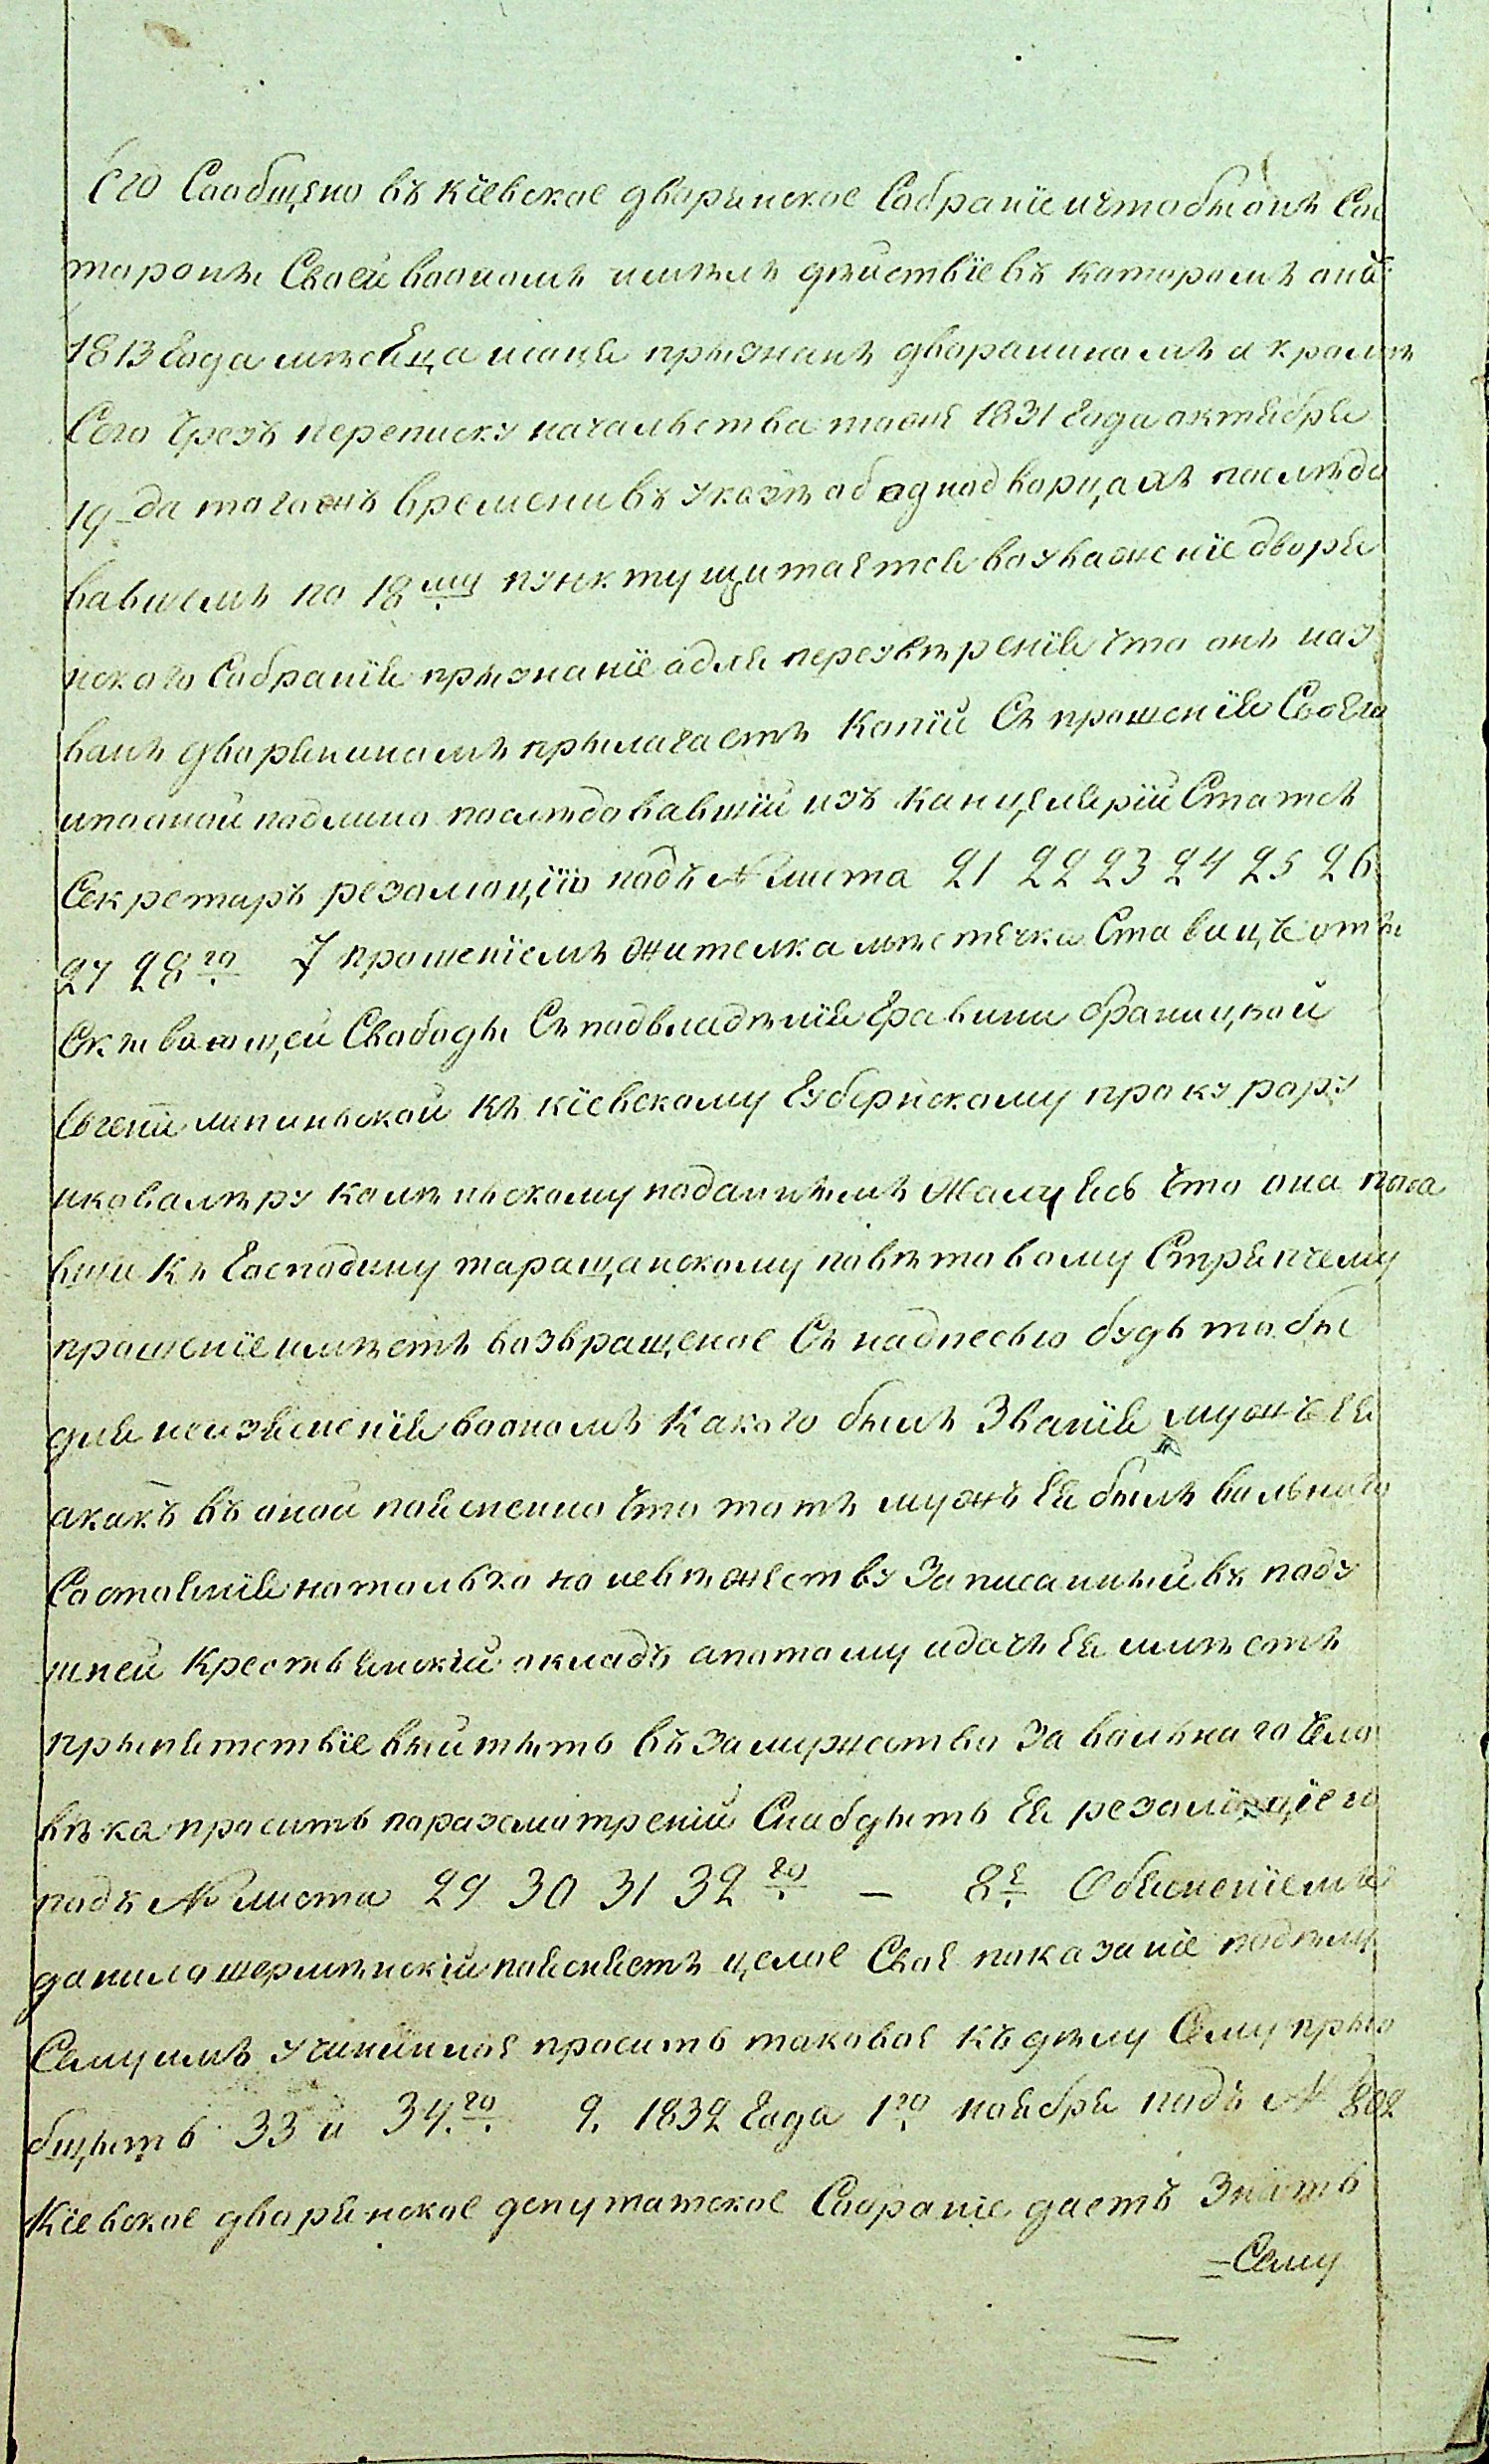 Его Сообщено въ кіевское дворянское Собраніе ичтобы онъ Сос
тороны Своей воономъ имелъ дѣйствіе въ каторомъ оный
1813 Года мѣсеца маця прызнанъ дворанинамъ и кромѣ
Сего Чрезъ переписку начальства тоей 1831 Года октября
19 да тогожъ времени въ указѣ об аднодворцахъ послѣдо
вавшемъ по 18му пункту щитается воуважение дворя
нского Собранія прызнаніе адля перезвѣренія Что онъ наз
ванъ дворянинамъ прылагаетъ Копій Съ прошенія Своего
ипооной подлино послѣдовавшій изъ канцелярій Статсъ
Секретаръ резолюцію подъ № листа 21 22 23 24 25 26
27 28го 7 прошеніемъ жителка мѣстечка Ставищъ отъи
Скивающей Свободы Съ подвладѣнія Графини браницкой
Евгеній липинской къ кіевскому Губернскому прокурору
икавалѣру каменскому поданымъ Жалуясь Что она пода
вши Къ Господину таращанскому повѣтовому Стряпчему
прошеніе имѣетъ возвращеное Съ надпесью будь то бы
для неизясненія воономъ Какого былъ Званія мужъ Ея
акакъ въ оной пояснено Что тотъ мужъ Ея былъ вольного
Состоянія натолько но невѣжеству Записанный въ поду
шней крестьянскій окладъ апотому идочь Ея имѣетъ
прыпятствіе выйтыть въ Замужество За вольнаго Чело
вѣка просить поразсмотреній Снабдыть Ея резолюціего
подъ № листа 29 30 31 32го — 8е Обясненіемъ
данило шермѣнскій поясняетъ целое Своя показаніе подѣлу
Сему имъ учиніиноя просить таковоя къ дѣлу Сему прыо
бщыть 33 и 34.го 9. 1832 Года 1го ноября подъ № 802
Кіевское дворянское депутатское Собраніе даетъ Знать
Сему